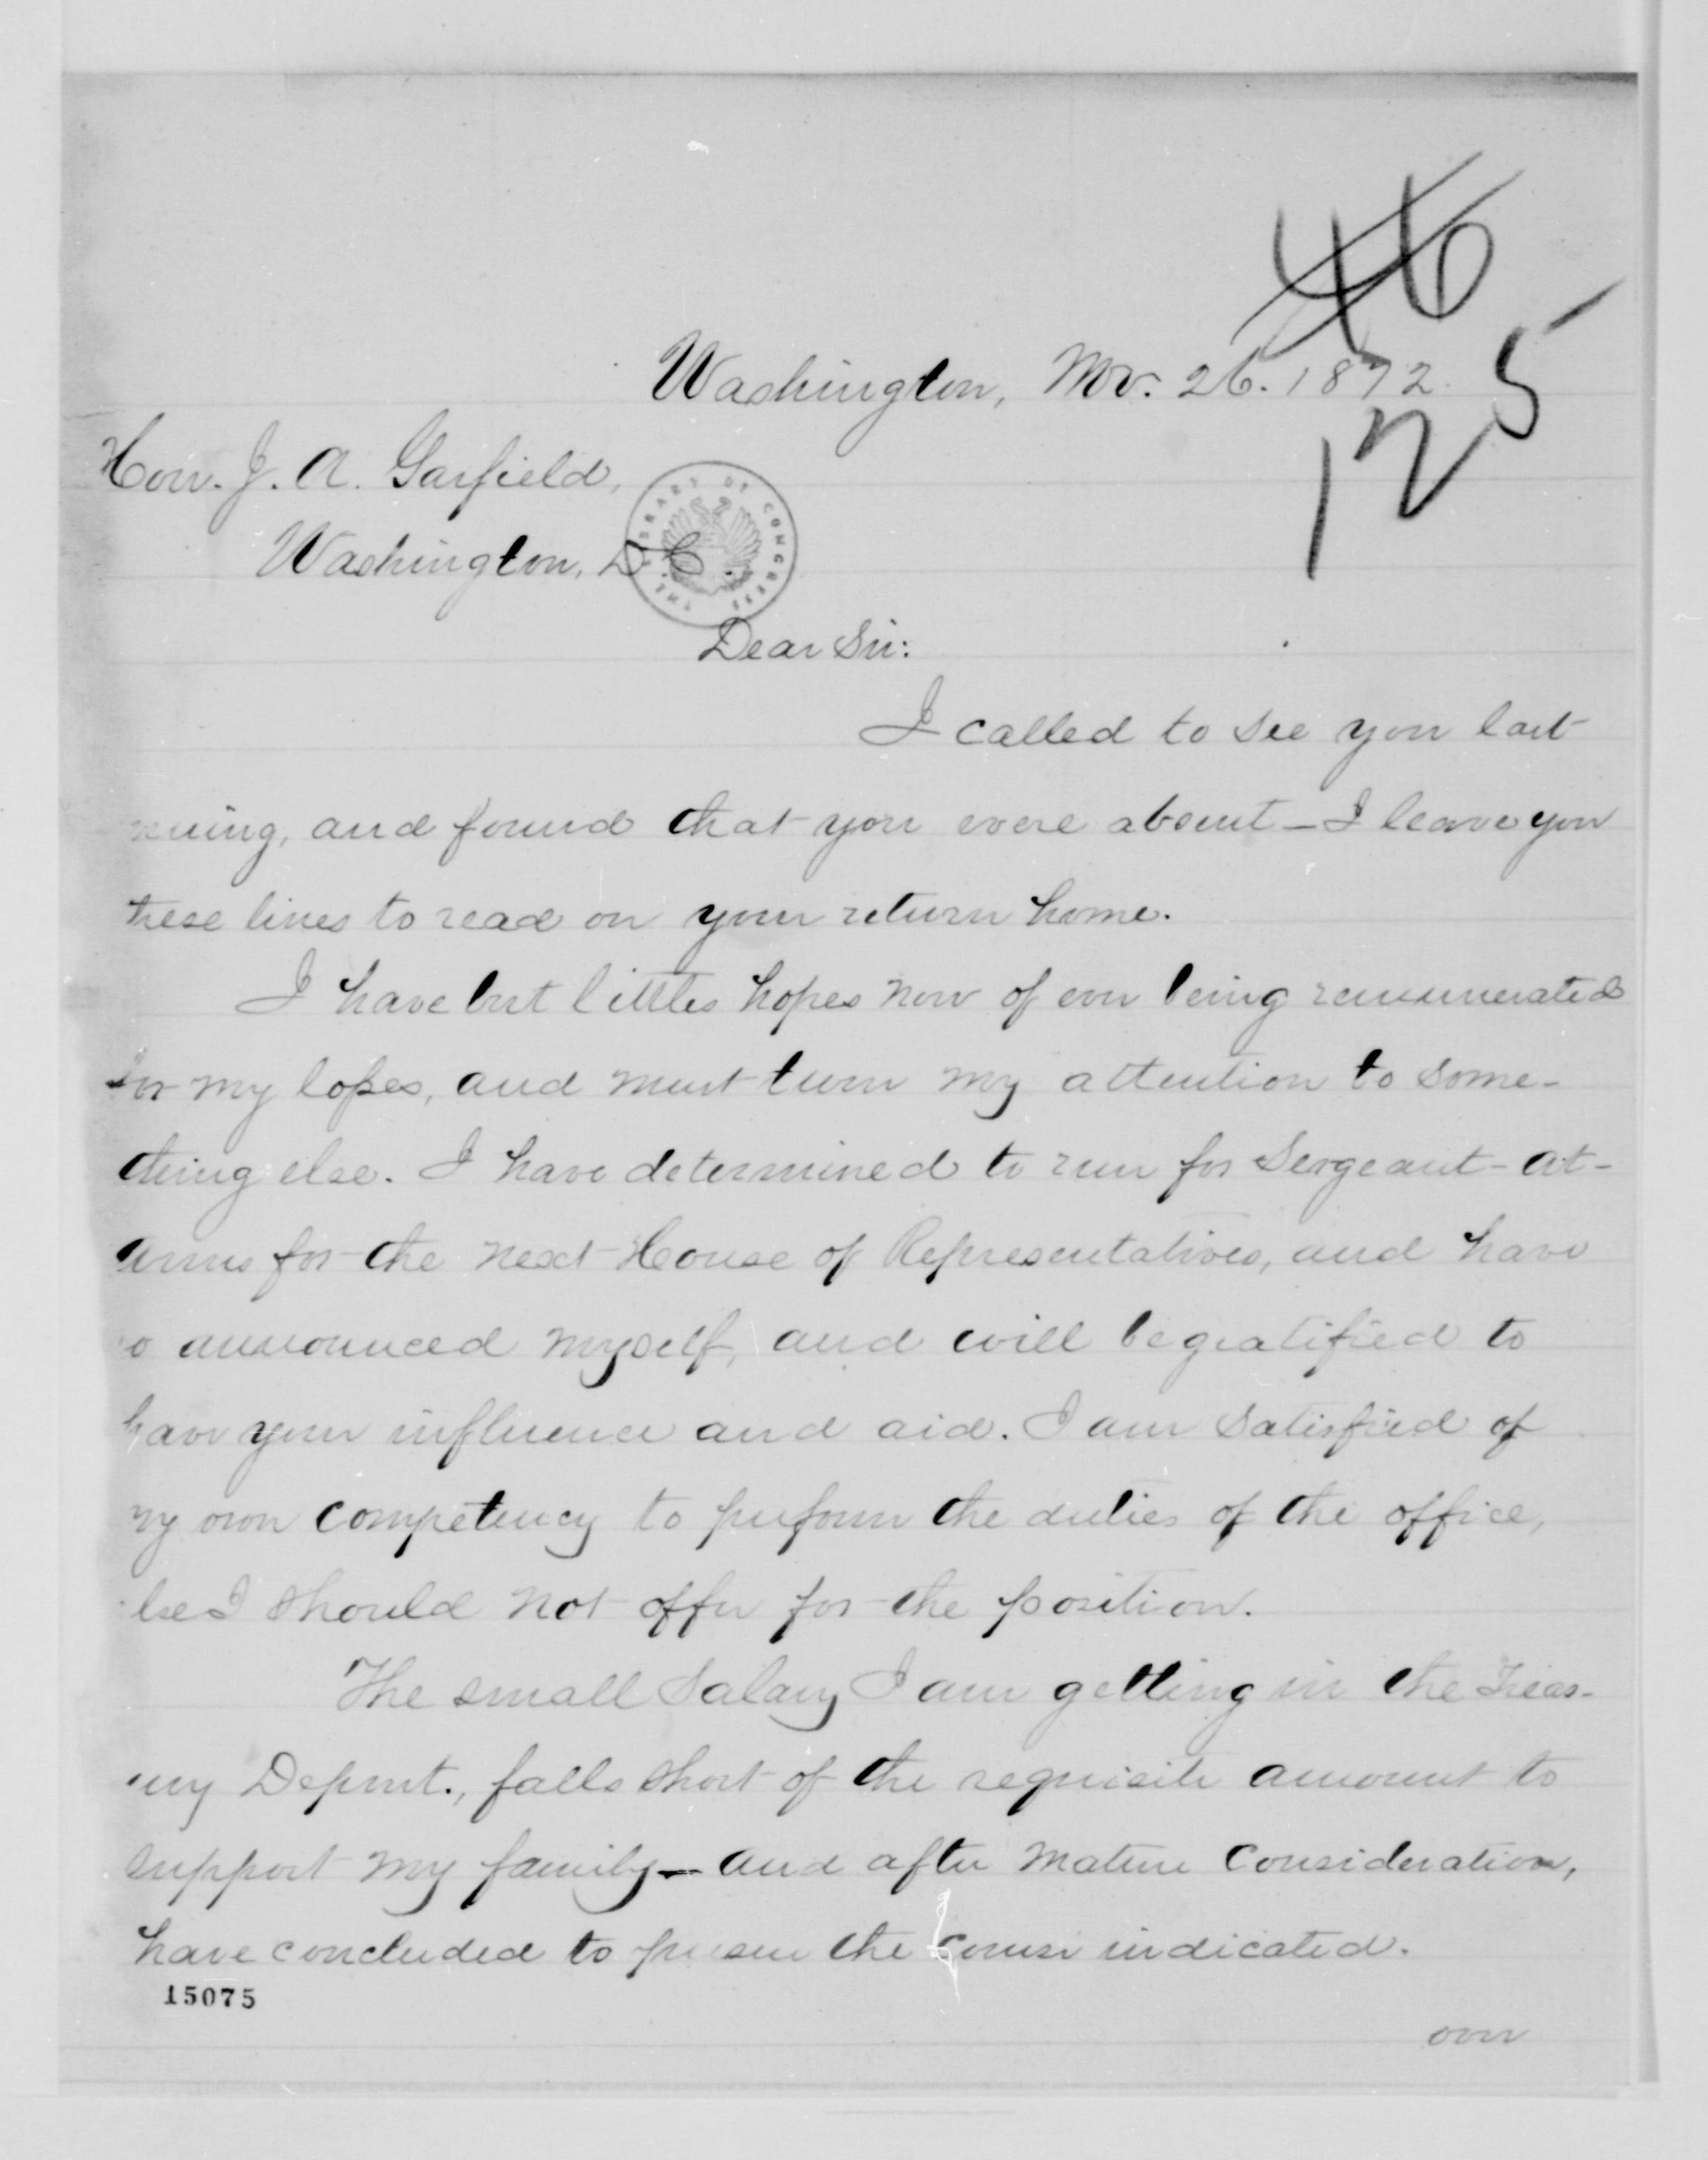 46
Washington, Nov. 26. 1872.
125
Hon. J. A. Garfield,
Washington, D.C.
THE LIBRARY OF CONGRESS
Dear Sir:
I called to see you last
evening, and found that you were absent — I leave you
these lines to read on your return home.
I have but little hopes now of ever being remunerated
for my losses, and must turn my attention to some-
thing else. I have determined to run for Sergeant-at-
arms for the next House of Representatives, and have
so announced myself, and will be gratified to
have your influence and aid. I am satisfied of
my own competency to perform the duties of the office,
else I should not offer for the position.
The small salary I am getting in the Treas-
ury Depmt., falls short of the requisite amount to
support my family — and after mature consideration,
have concluded to pursue the course indicated.
15075
over